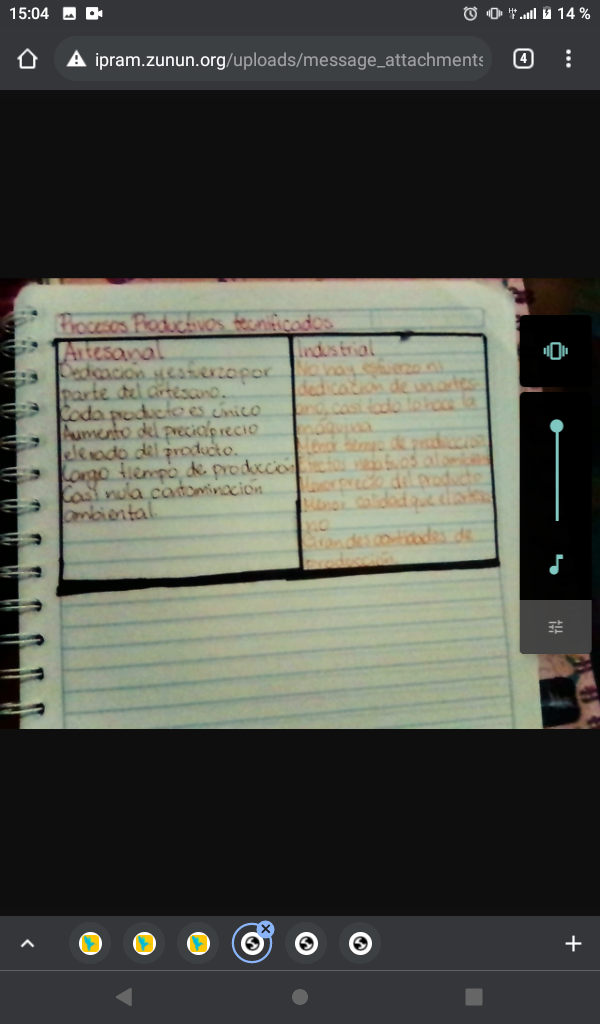 15:04
14 %
ipram.zunun.org/uploads/message_attachments
4
Procesos Productivos tecnificados
Artesanal
Dedicación y esfuerzo por
parte del artesano.
Cada producto es único
Aumento del precio/precio
elevado del producto.
Largo tiempo de producción
Casi nula contaminación
ambiental.
Industrial
No hay esfuerzo ni
dedicación de un artes-
ano, casi todo lo hace la
máquina
Menor tiempo de producción
Efectos negativos al ambiente
Menor precio del producto
Menor calidad que el artesa
no
Grandes cantidades de
producción.